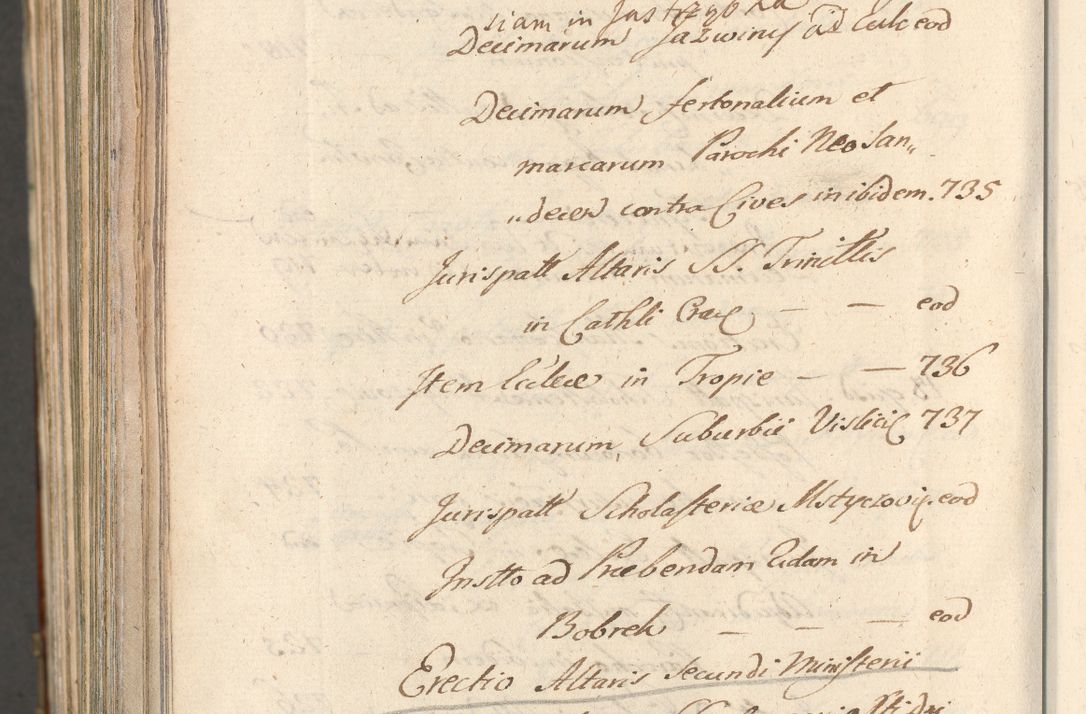 siam in Jastrząbka
Decimarum Jazwiny ad Eccle eod
Decimarum fertonalium et
marcarum Parochi Neo San„
„decen contra Cives in ibidem. 735
Jurispatt Altaris SS Trinittis
in Cathli Crac — — eod
Item Eccleæ in Tropie — — 736
Decimarum, Suburbii Vislicię 737
Jurispatt Scholasteriæ Mstyczovię. eod
Instto ad Præbendam Eidam in
Bobrek — — — eod
Erectio Altaris secundi Ministerii